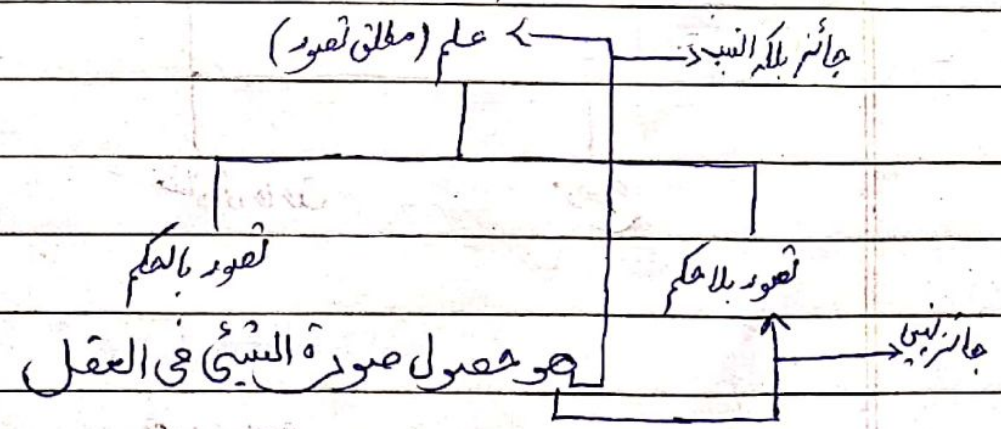 جائز بلکہ انسب ہے علم (مطلق تصور)
تصور بلا حکم تصور بالحکم
جائز نہیں
ھو حصول صورۃ الشیئ فی العقل